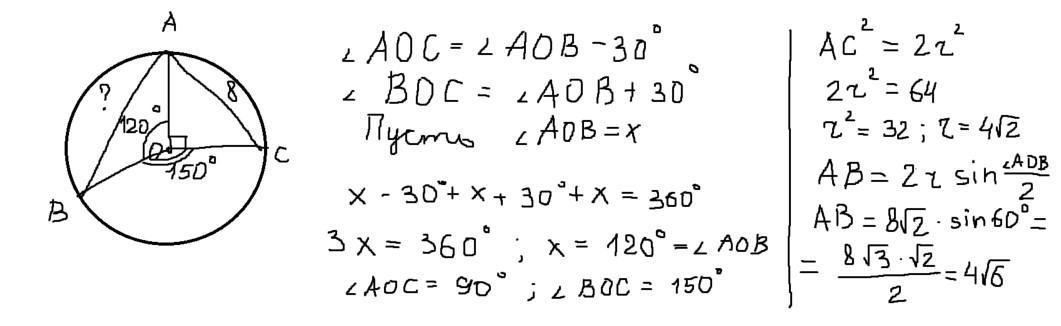 A
?
8
120°
O
150°
C
B
∠AOC = ∠AOB - 30°
∠ BOC = ∠AOB + 30°
Пусть ∠AOB = x
x - 30° + x + 30° + x = 360°
3x = 360° ; x = 120° = ∠AOB
∠AOC = 90° ; ∠BOC = 150°
AC² = 2r²
2r² = 64
r² = 32 ; r = 4√2
AB = 2r sin ∠AOB/2
AB = 8√2 · sin 60° =
= 8√3 · √2 / 2 = 4√6